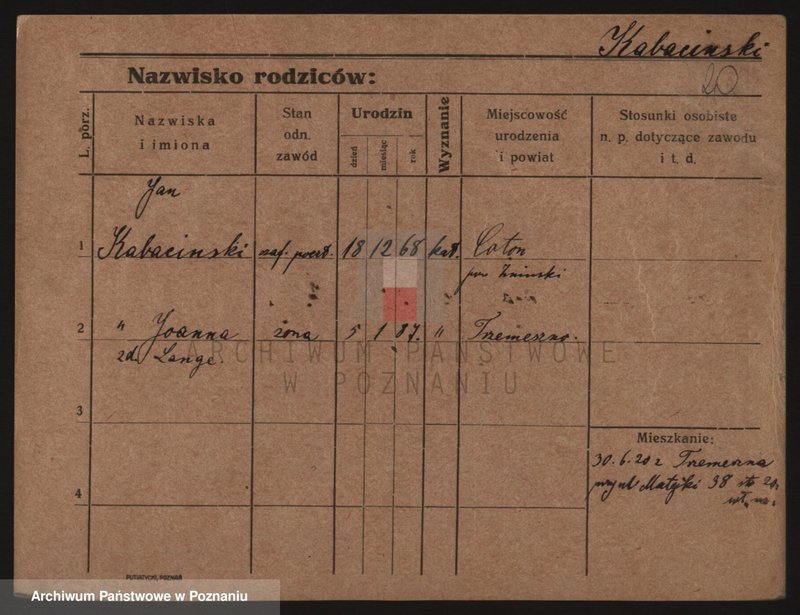 Kabacinski
20
Nazwisko rodziców:
L. porz.
Nazwiska
i imiona
Stan
odn.
zawód
Urodzin
dzień
miesiąc
rok
Wyznanie
Miejscowość
urodzenia
i powiat
Stosunki osobiste
n. p. dotyczące zawodu
i t. d.
Jan
1 Kabacinski poczt. 18 12 68 kat. Coton
Żninski
2 " Joanna żona 5 1 87. " Tremeszno.
zd. Lange.
ARCHIWUM PAŃSTWOWE
W POZNANIU
3
Mieszkanie:
30.6.20 z Tremeszna
Matejki 38
4
PUTIATYCKI, POZNAŃ
Archiwum Państwowe w Poznaniu